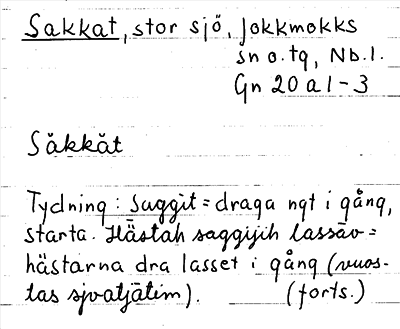 Sakkat, stor sjö, Jokkmokks
sn o. tg, Nb. l.
Gn 20 a 1-3
Săkkăt
Tydning: suggit = draga ngt i gång,
starta. Hästah saggijih lassāv =
hästarna dra lasset i gång (vuos-
tas sjvatjātim). (forts.)